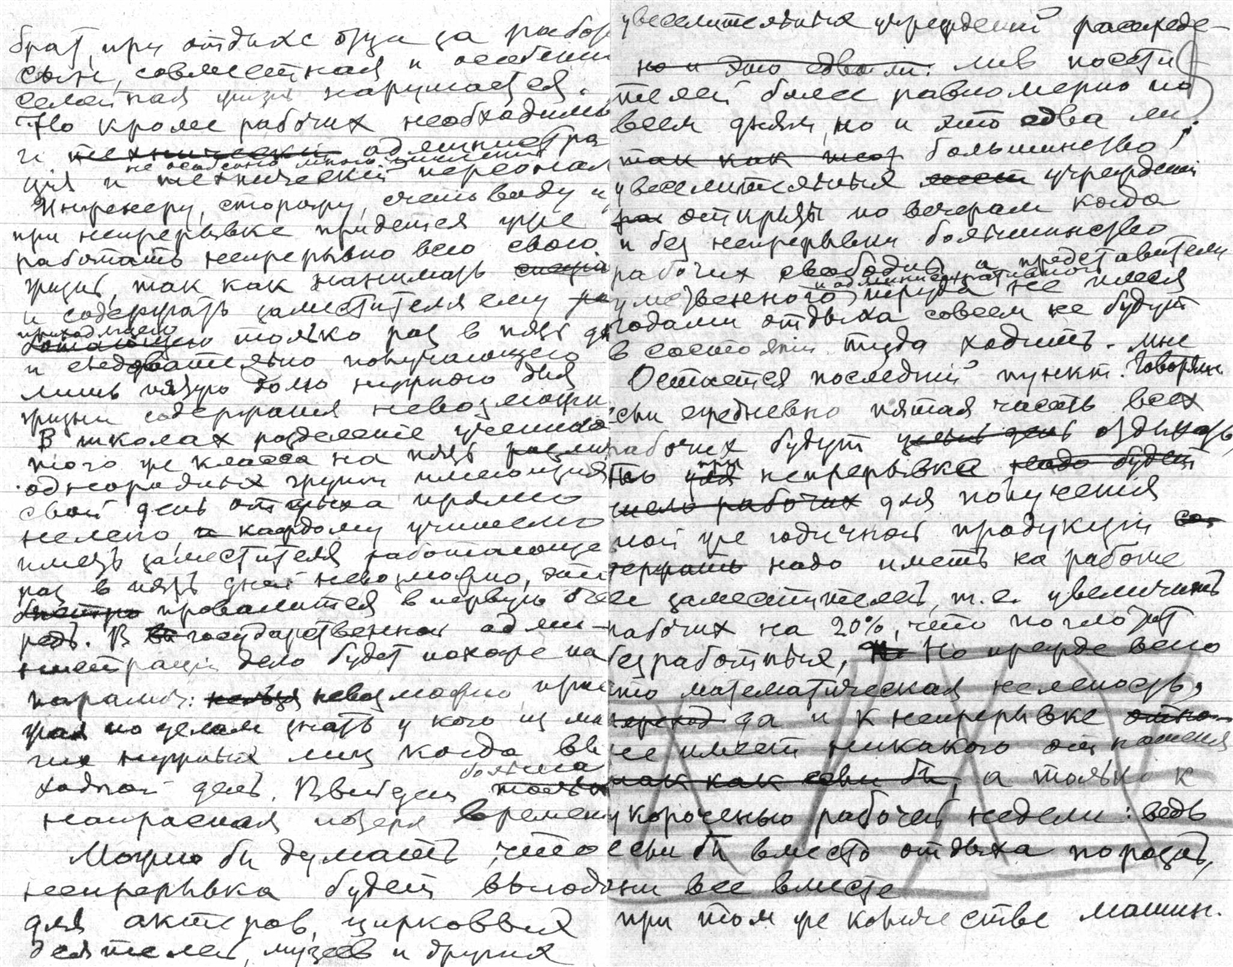 брат, при отдыхе отца за работой
сын, совместная и особенно
семейная жизнь нарушается.
Но кроме рабочих необходимы
и технический администра
не особенно много
ция и технический персонал
Инженеру, сторожу, счетоводу и
при непрерывке придется уже
работать непрерывно всю свою
жизнь, так как нанимать
и содержать заместителя ему
приходящего только раз в пять дн
и следовательно получающего
лишь пятую долю нужного для
жизни содержания невозможн
В школах разделение учеников
того же класса на пять
однородных групп имеющих
свой день отдыха прямо
нелепо, а каждому учителю
иметь заместителя работающе
раз в пять дней невозможно,
быстро провалится в первую оче
редь. В государственной адми-
нистрации дело будет похоже на
паралич: нельзя невозможно
жая по делам знать у кого из мно
гих нужных лиц когда вы
больша
ходной день. Выйдет только
напрасная потеря времени
Можно бы думать, что
непрерывка будет выгодна
для актеров, цирковых
деятелей, музеев и других
увеселительных учреждений распреде-
но и это едва ли. лив посети
телей более равномерно по
всем дням, но и это едва ли.
так как большинство
увеселительных учреждений
открыты по вечерам когда
и без непрерывки большинство
рабочих свободны, а представители
и административного
умственного труда не имея
годами отдыха совсем не будут
в состоянии туда ходить. мне
Остается последний пункт. Говорят
если ежедневно пятая часть всех
рабочих будут целый день отдыхать,
то при непрерывке надо будет
число рабочих для получения
той же годичной продукции со-
держать надо иметь на работе
заместителей, т. е. увеличить
рабочих на 20%, что поглотит
безработных. Но прежде всего
это математическая нелепость,
переход да и к непрерывке отно-
не имеет никакого отношения
так как если бы, а только к
укорочению рабочей недели: ведь
если бы вместо отдыха порознь,
они все вместе
при том же количестве машин.